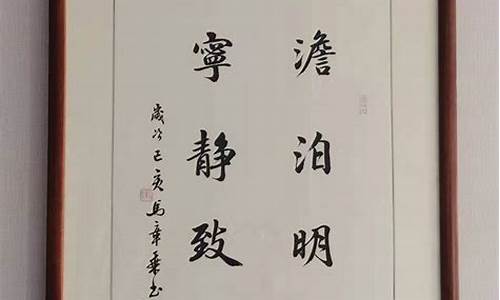 澹泊明
寧靜致
歲次己亥馬章乘書